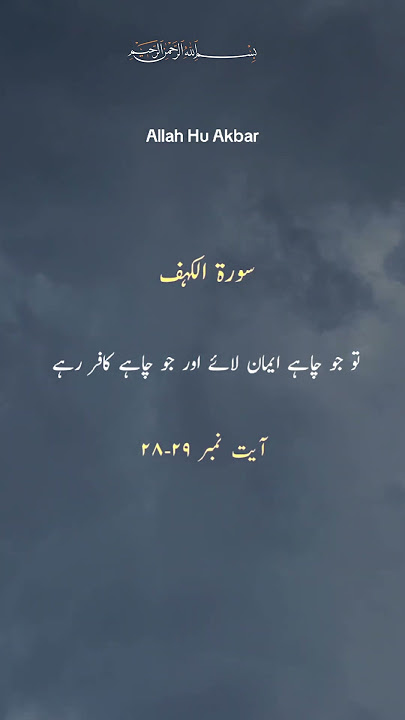 بسم الله الرحمن الرحيم
Allah Hu Akbar
سورۃ الکہف
تو جو چاہے ایمان لائے اور جو چاہے کافر رہے
آیت نمبر ۲۹-۲۸